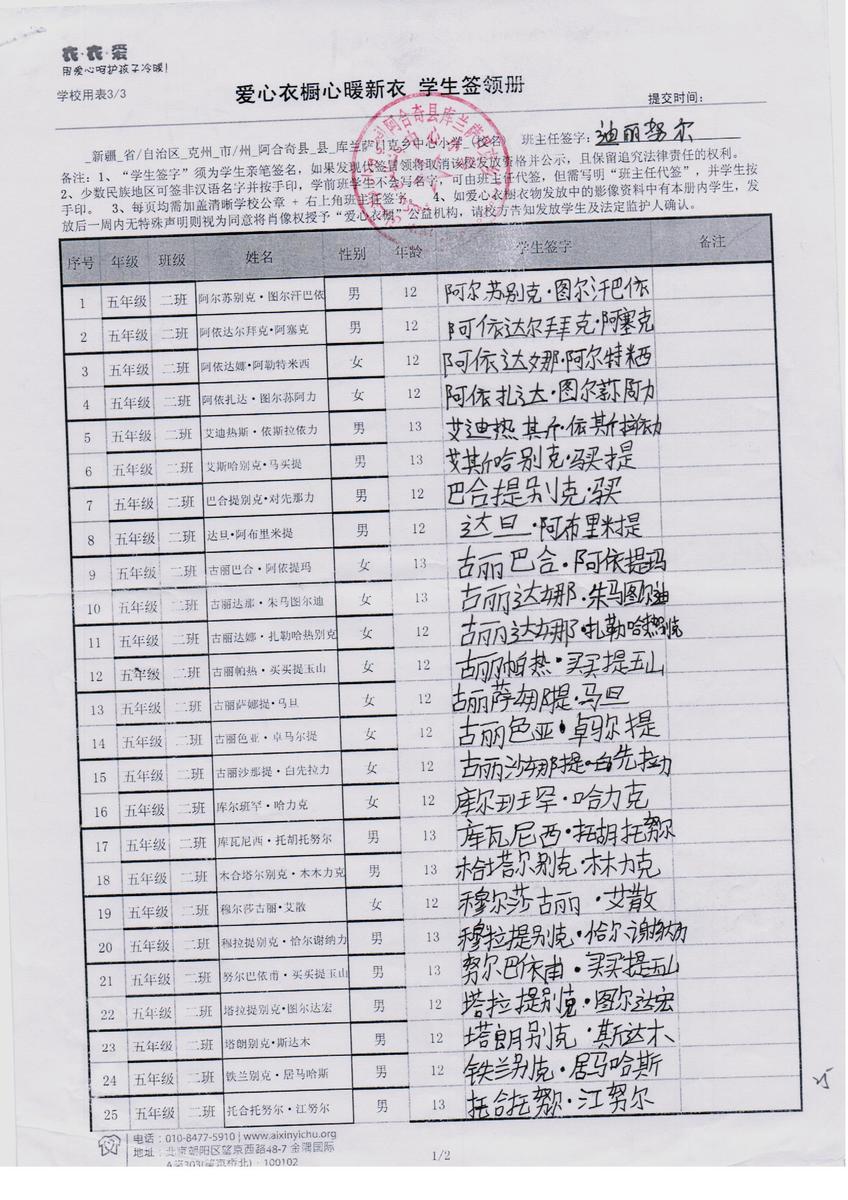 衣·衣·爱
用爱心呵护孩子冷暖!
学校用表3/3
爱心衣橱心暖新衣 学生签领册
提交时间:
_新疆_省/自治区_克州_市/州_阿合奇县_县_库兰萨日克乡中心小学_(校名) 班主任签字: 迪丽努尔
备注: 1、"学生签字"须为学生亲笔签名, 如果发现代签冒领将取消该校发放资格并公示, 且保留追究法律责任的权利。
2、少数民族地区可签非汉语名字并按手印, 学前班学生不会写名字, 可由班主任代签, 但需写明"班主任代签", 并学生按
手印。 3、每页均需加盖清晰学校公章 + 右上角班主任签字 4、如爱心衣橱衣物发放中的影像资料中有本册内学生, 发
放后一周内无特殊声明则视为同意将肖像权授予"爱心衣橱"公益机构, 请校方告知发放学生及法定监护人确认。
序号 年级 班级 姓名 性别 年龄 学生签字 备注
1 五年级 二班 阿尔苏别克·图尔汗巴依 男 12 阿尔苏别克·图尔汗巴依
2 五年级 二班 阿依达尔拜克·阿塞克 男 12 阿依达尔拜克·阿塞克
3 五年级 二班 阿依达娜·阿勒特米西 女 12 阿依达娜·阿尔特米西
4 五年级 二班 阿依扎达·图尔荪阿力 女 12 阿依扎达·图尔荪阿力
5 五年级 二班 艾迪热斯·依斯拉依力 男 13 艾迪热其斤·依斯拉依力
6 五年级 二班 艾斯哈别克·马买提 男 13 艾其斤哈别克·马买提
7 五年级 二班 巴合提别克·对先那力 男 12 巴合提别克·马买
8 五年级 二班 达旦·阿布里米提 男 12 达旦·阿布里米提
9 五年级 二班 古丽巴合·阿依提玛 女 13 古丽巴合·阿依提玛
10 五年级 二班 古丽达那·朱马图尔迪 女 13 古丽达娜·朱马图尔迪
11 五年级 二班 古丽达娜·扎勒哈热别克 女 12 古丽达娜·扎勒哈热别克
12 五年级 二班 古丽帕热·买买提玉山 女 12 古丽帕热·买买提玉山
13 五年级 二班 古丽萨娜提·马旦 女 12 古丽萨娜提·马旦
14 五年级 二班 古丽色亚·卓马尔提 女 12 古丽色亚·卓玛尔提
15 五年级 二班 古丽沙那提·白先拉力 女 12 古丽沙娜提·白先拉力
16 五年级 二班 库尔班罕·哈力克 女 12 库尔班罕·哈力克
17 五年级 二班 库瓦尼西·托胡托努尔 男 13 库瓦尼西·托胡托努尔
18 五年级 二班 木合塔尔别克·木木力克 男 13 木合塔尔别克·木木力克
19 五年级 二班 穆尔莎古丽·艾散 女 12 穆尔莎古丽·艾散
20 五年级 二班 穆拉提别克·恰尔谢纳力 男 13 穆拉提别克·恰尔谢纳力
21 五年级 二班 努尔巴依甫·买买提玉山 男 13 努尔巴依甫·买买提玉山
22 五年级 二班 塔拉提别克·图尔达宏 男 12 塔拉提别克·图尔达宏
23 五年级 二班 塔朗别克·斯达木 男 12 塔朗别克·斯达木
24 五年级 二班 铁兰别克·居马哈斯 男 12 铁兰别克·居马哈斯
25 五年级 二班 托合托努尔·江努尔 男 13 托合托努尔·江努尔
电话: 010-8477-5910 | www.aixinyichu.org
地址: 北京朝阳区望京西路48-7 金隅国际
A座303(望京桥北) · 100102
1/2